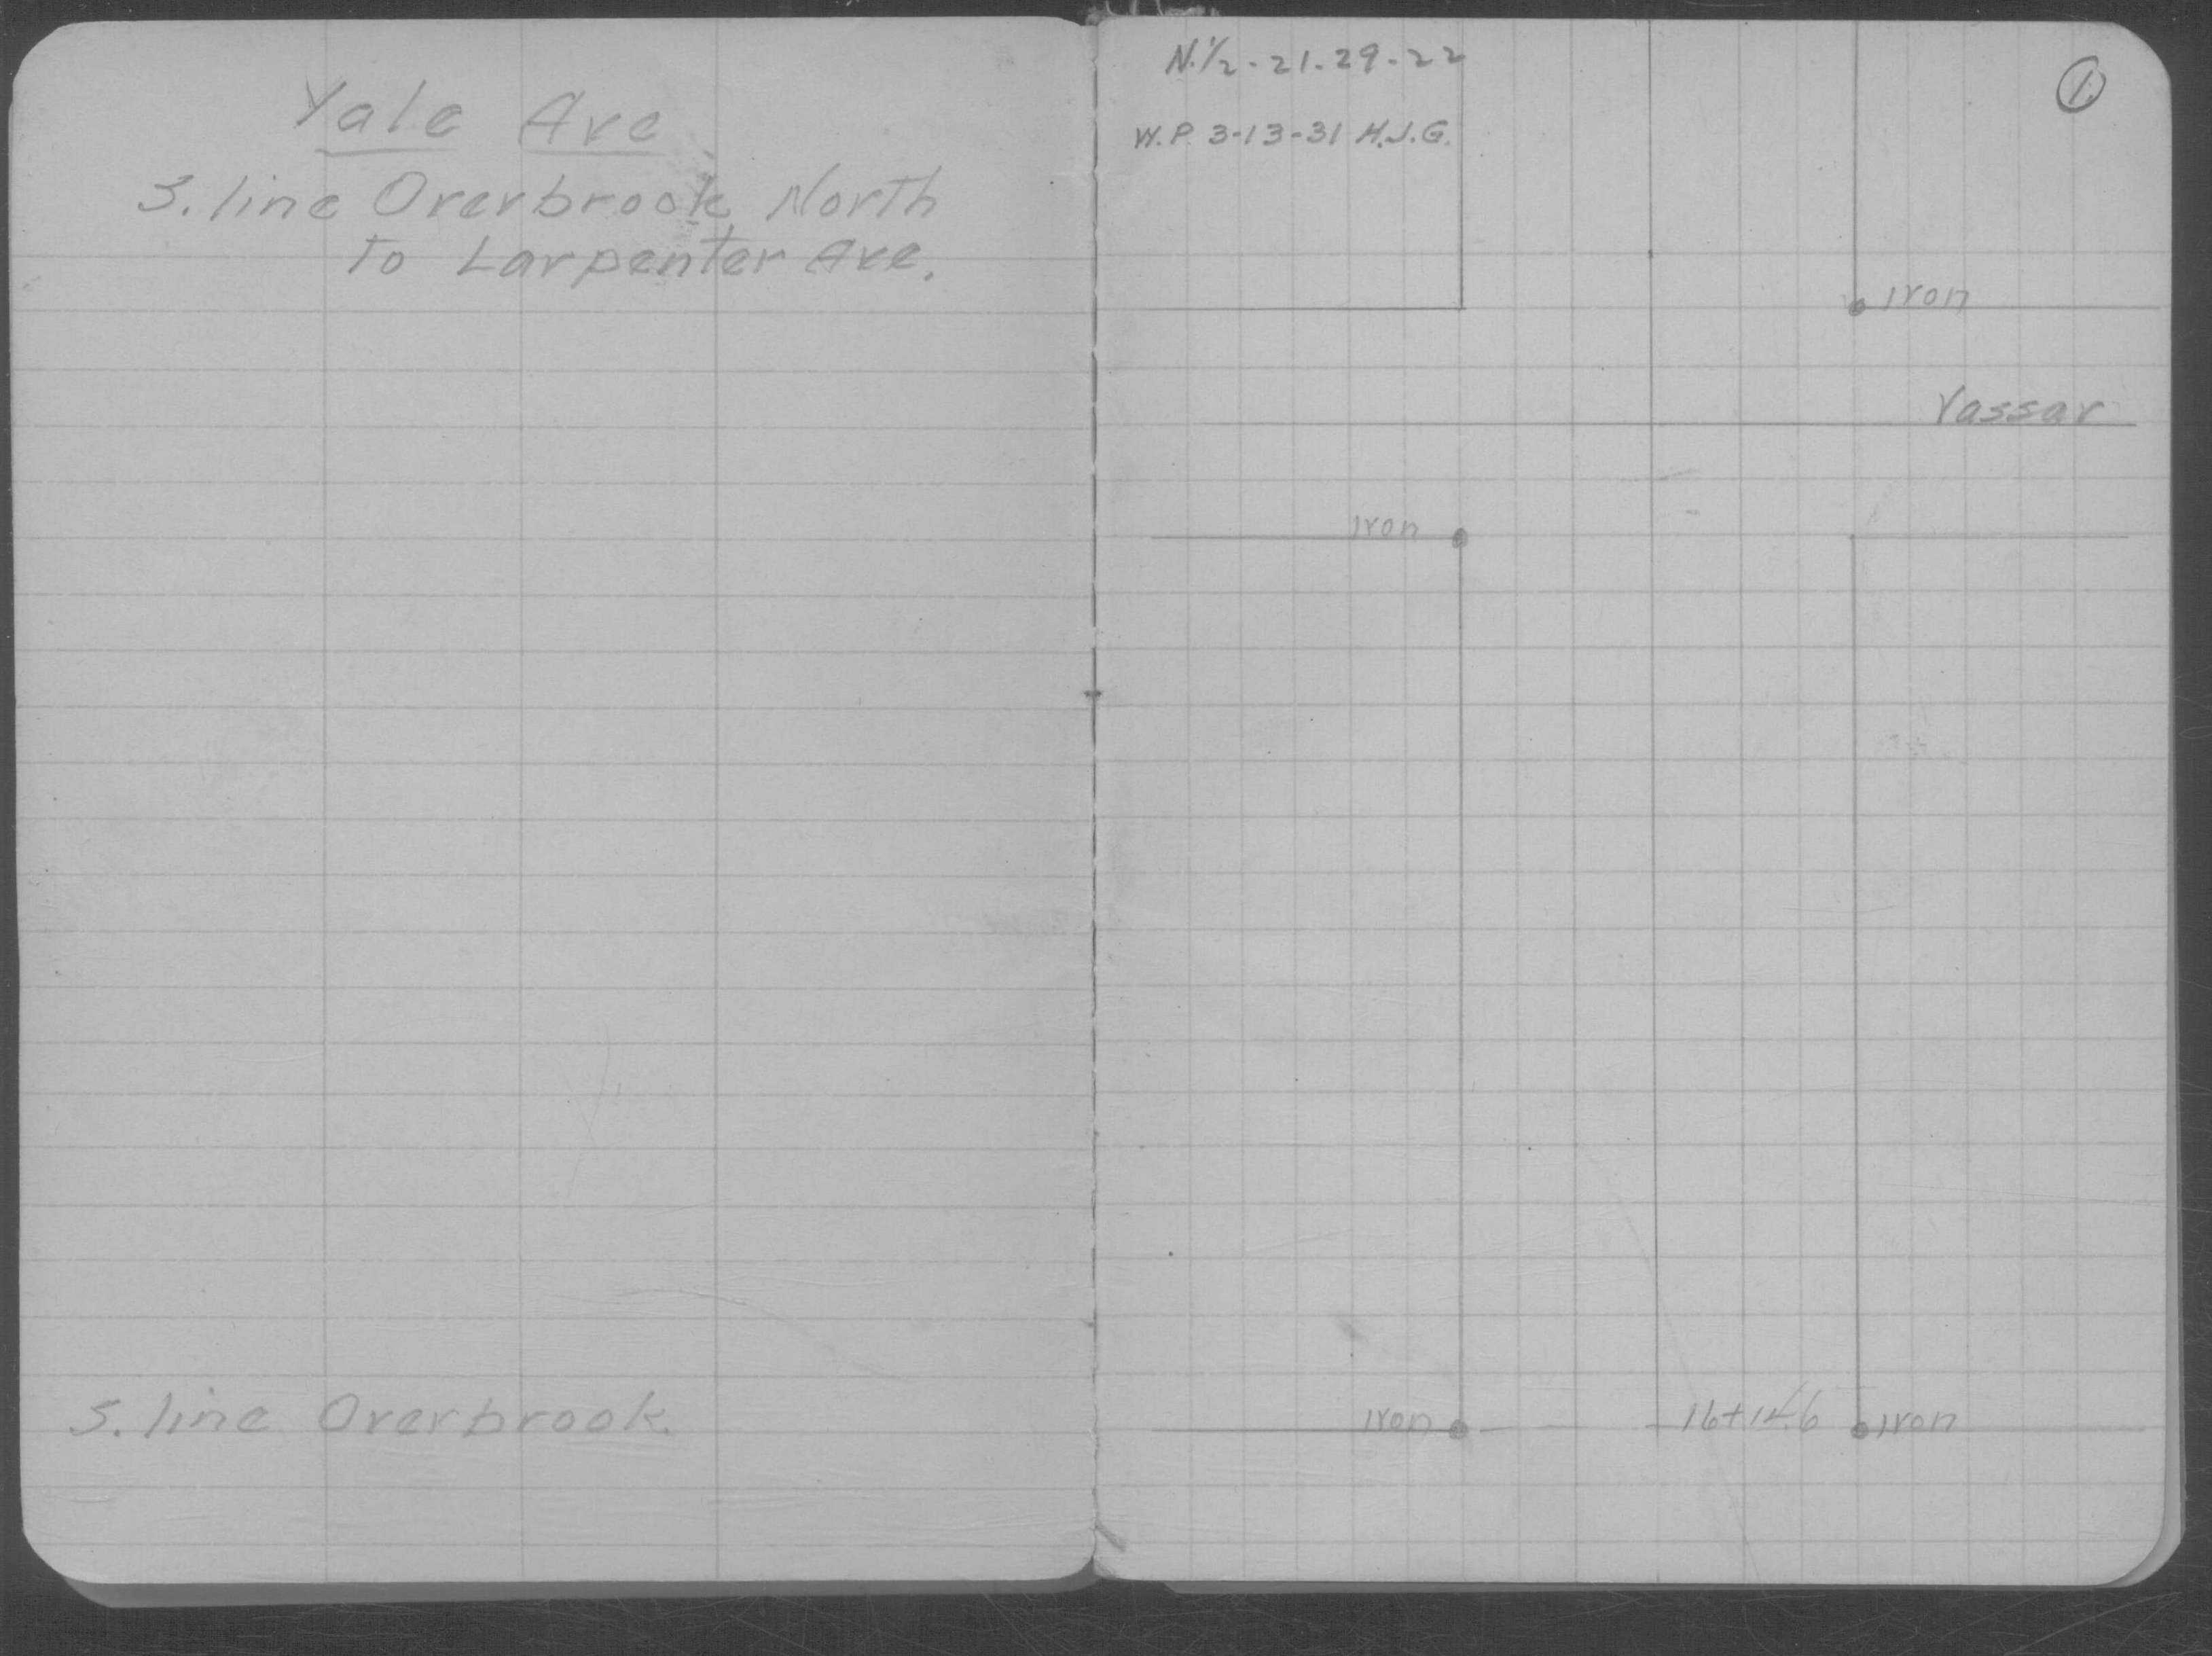 Yale Ave
S. line Overbrook North
to Larpenter Ave.
S. line Overbrook.
N.1/2-21-29-22
1.
W.P. 3-13-31 H.J.G.
iron
Vassar
iron
iron
16+14.6
iron